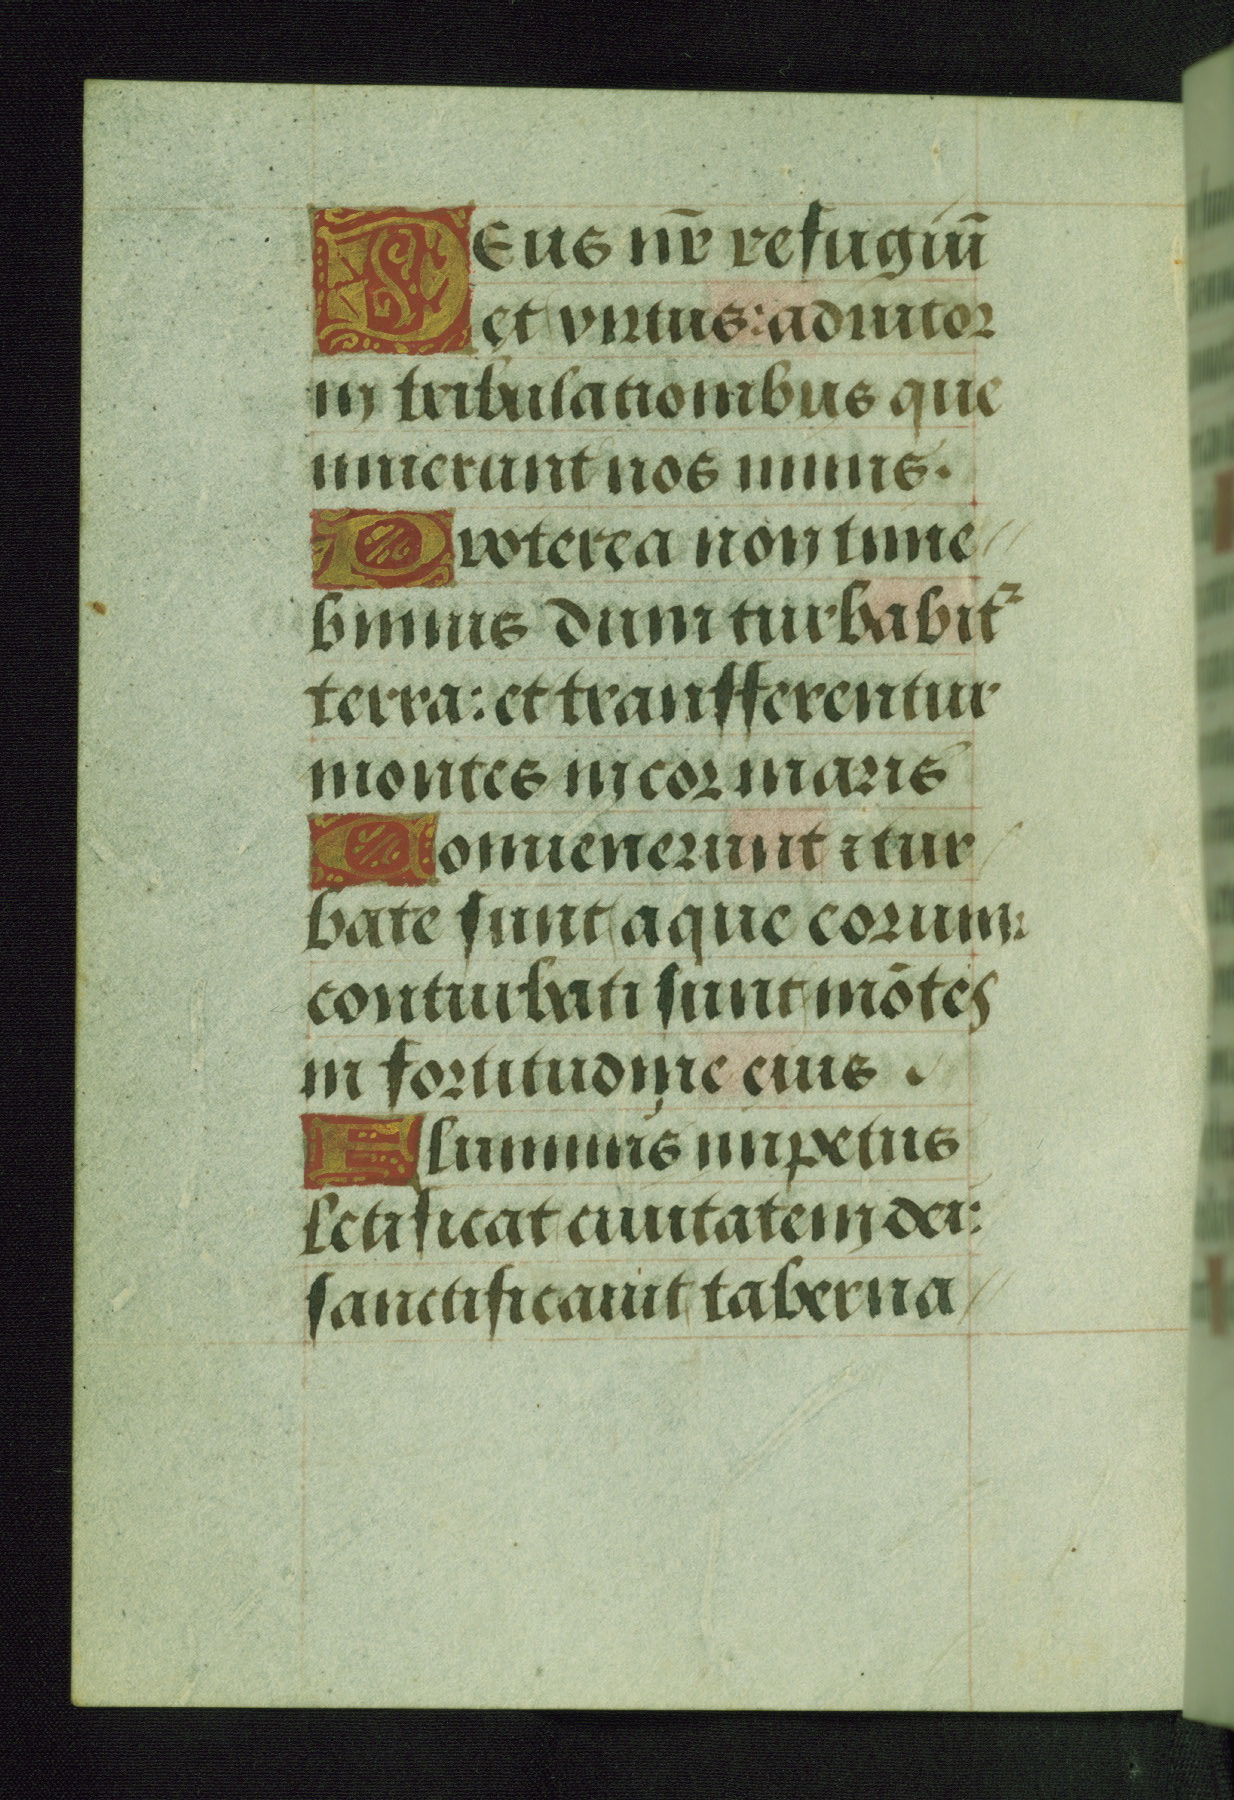 Deus nr̄ refugiū
et virtus: adiutor
in tribulationibus que
inuenerunt nos nimis.
Propterea non time
bimus dum turbabit᷑
terra: et transfferentur
montes in cor maris
Sonuerunt ⁊ tur
bate sunt aque eorum
conturbati sunt mōtes
in fortitudine eius.
Fluminis impetus
letificat ciuitatem dei:
sanctificauit taberna